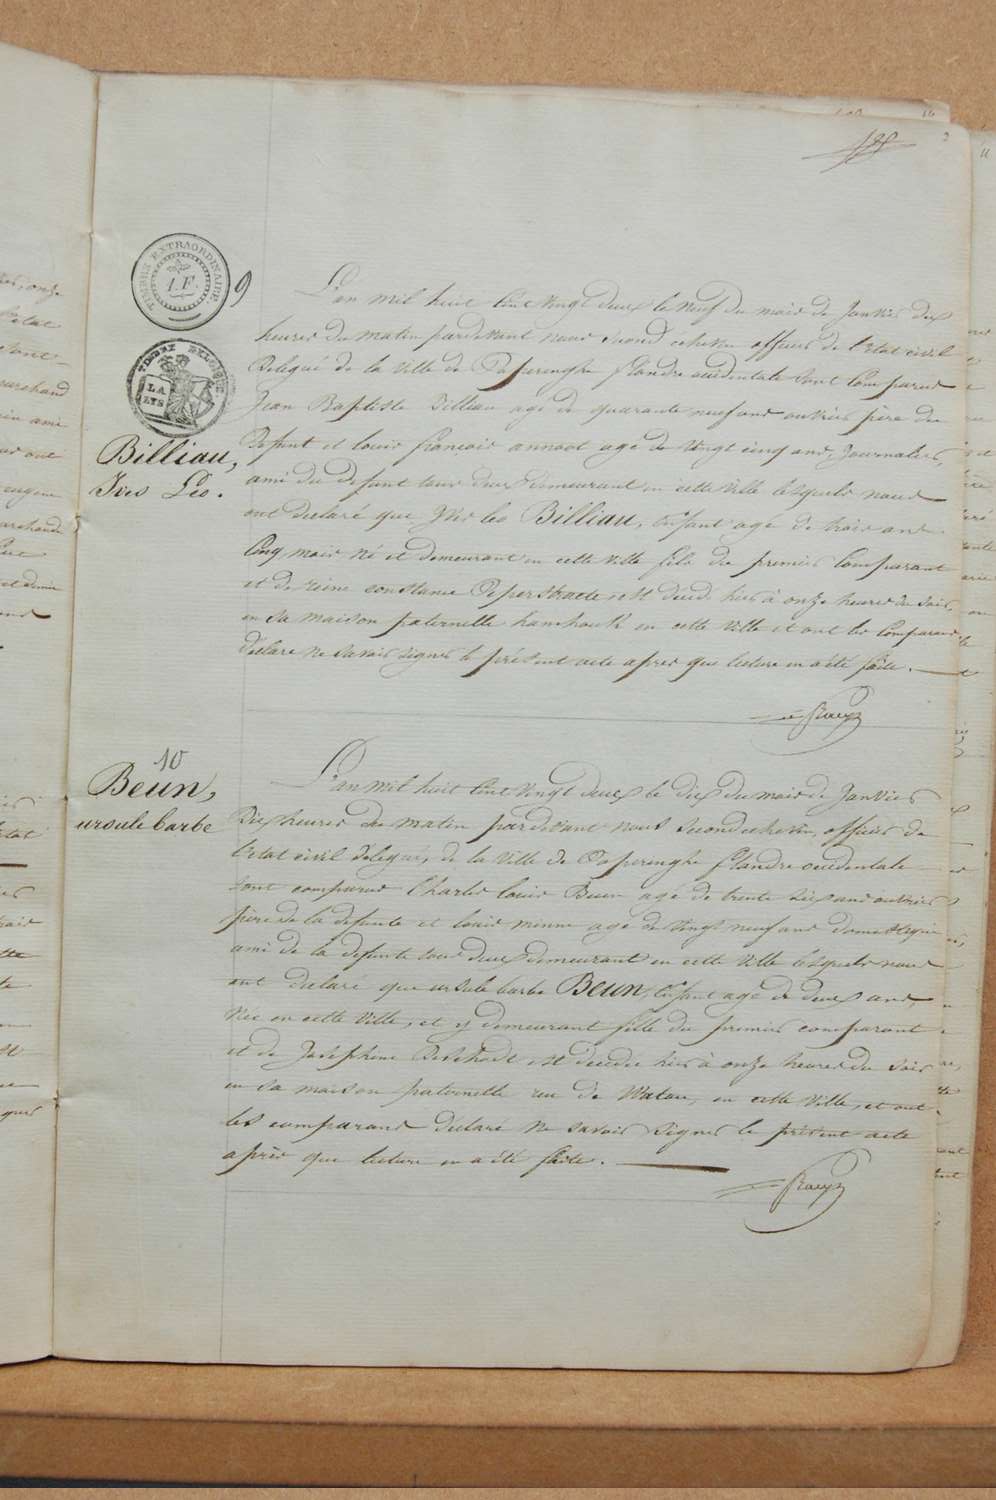 TIMBRE EXTRAORDINAIRE.
1.F.
9
TIMBRE BELGIQUE
LA
LYS
Billiau,
Ives Léo.
L'an mil huit cent vingt deux le neuf du mois de Janvier dix
heures du matin pardevant nous second échevin officier de l'Etat civil
Délégué de la ville de Poperinghe flandre occidentale sont comparus
Jean Baptiste Billiau agé de quarante neuf ans ouvrier père du
Défunt et louis françois agé de vingt cinq ans, Journalier,
ami du défunt tous deux demeurant en cette ville lesquels nous
ont déclaré que Ives leo Billiau, Enfant agé de trois ans
Cinq mois né et demeurant en cette ville fils du premier Comparant
et de reine constance est décédé hier à onze heures du soir,
en sa maison paternelle en cette ville et ont les Comparans
déclaré ne savoir signer le présent acte après que lecture en a été faite.
10
Beun,
ursule barbe
L'an mil huit Cent vingt deux le dix du mois de Janvier
Dix heures du matin pardevant nous second echevin, officier de
l'etat civil délégué, de la ville de Poperinghe flandre occidentale
sont comparus Charles louis Beun agé de trente six ans ouvrier
père de la défunte et louis minne agé de vingt neuf ans domestique
ami de la défunte tous deux demeurant en cette ville lesquels nous
ont déclaré que ursule barbe Beun, Enfant agé de deux ans,
Née en cette ville, et y demeurant fille du premier comparant
et de Josephine est décédée hier à onze heures du soir
en sa maison paternelle rue de Watou, en cette ville, et ont
les comparans déclaré ne savoir signer le présent acte
après que lecture en a été faite.